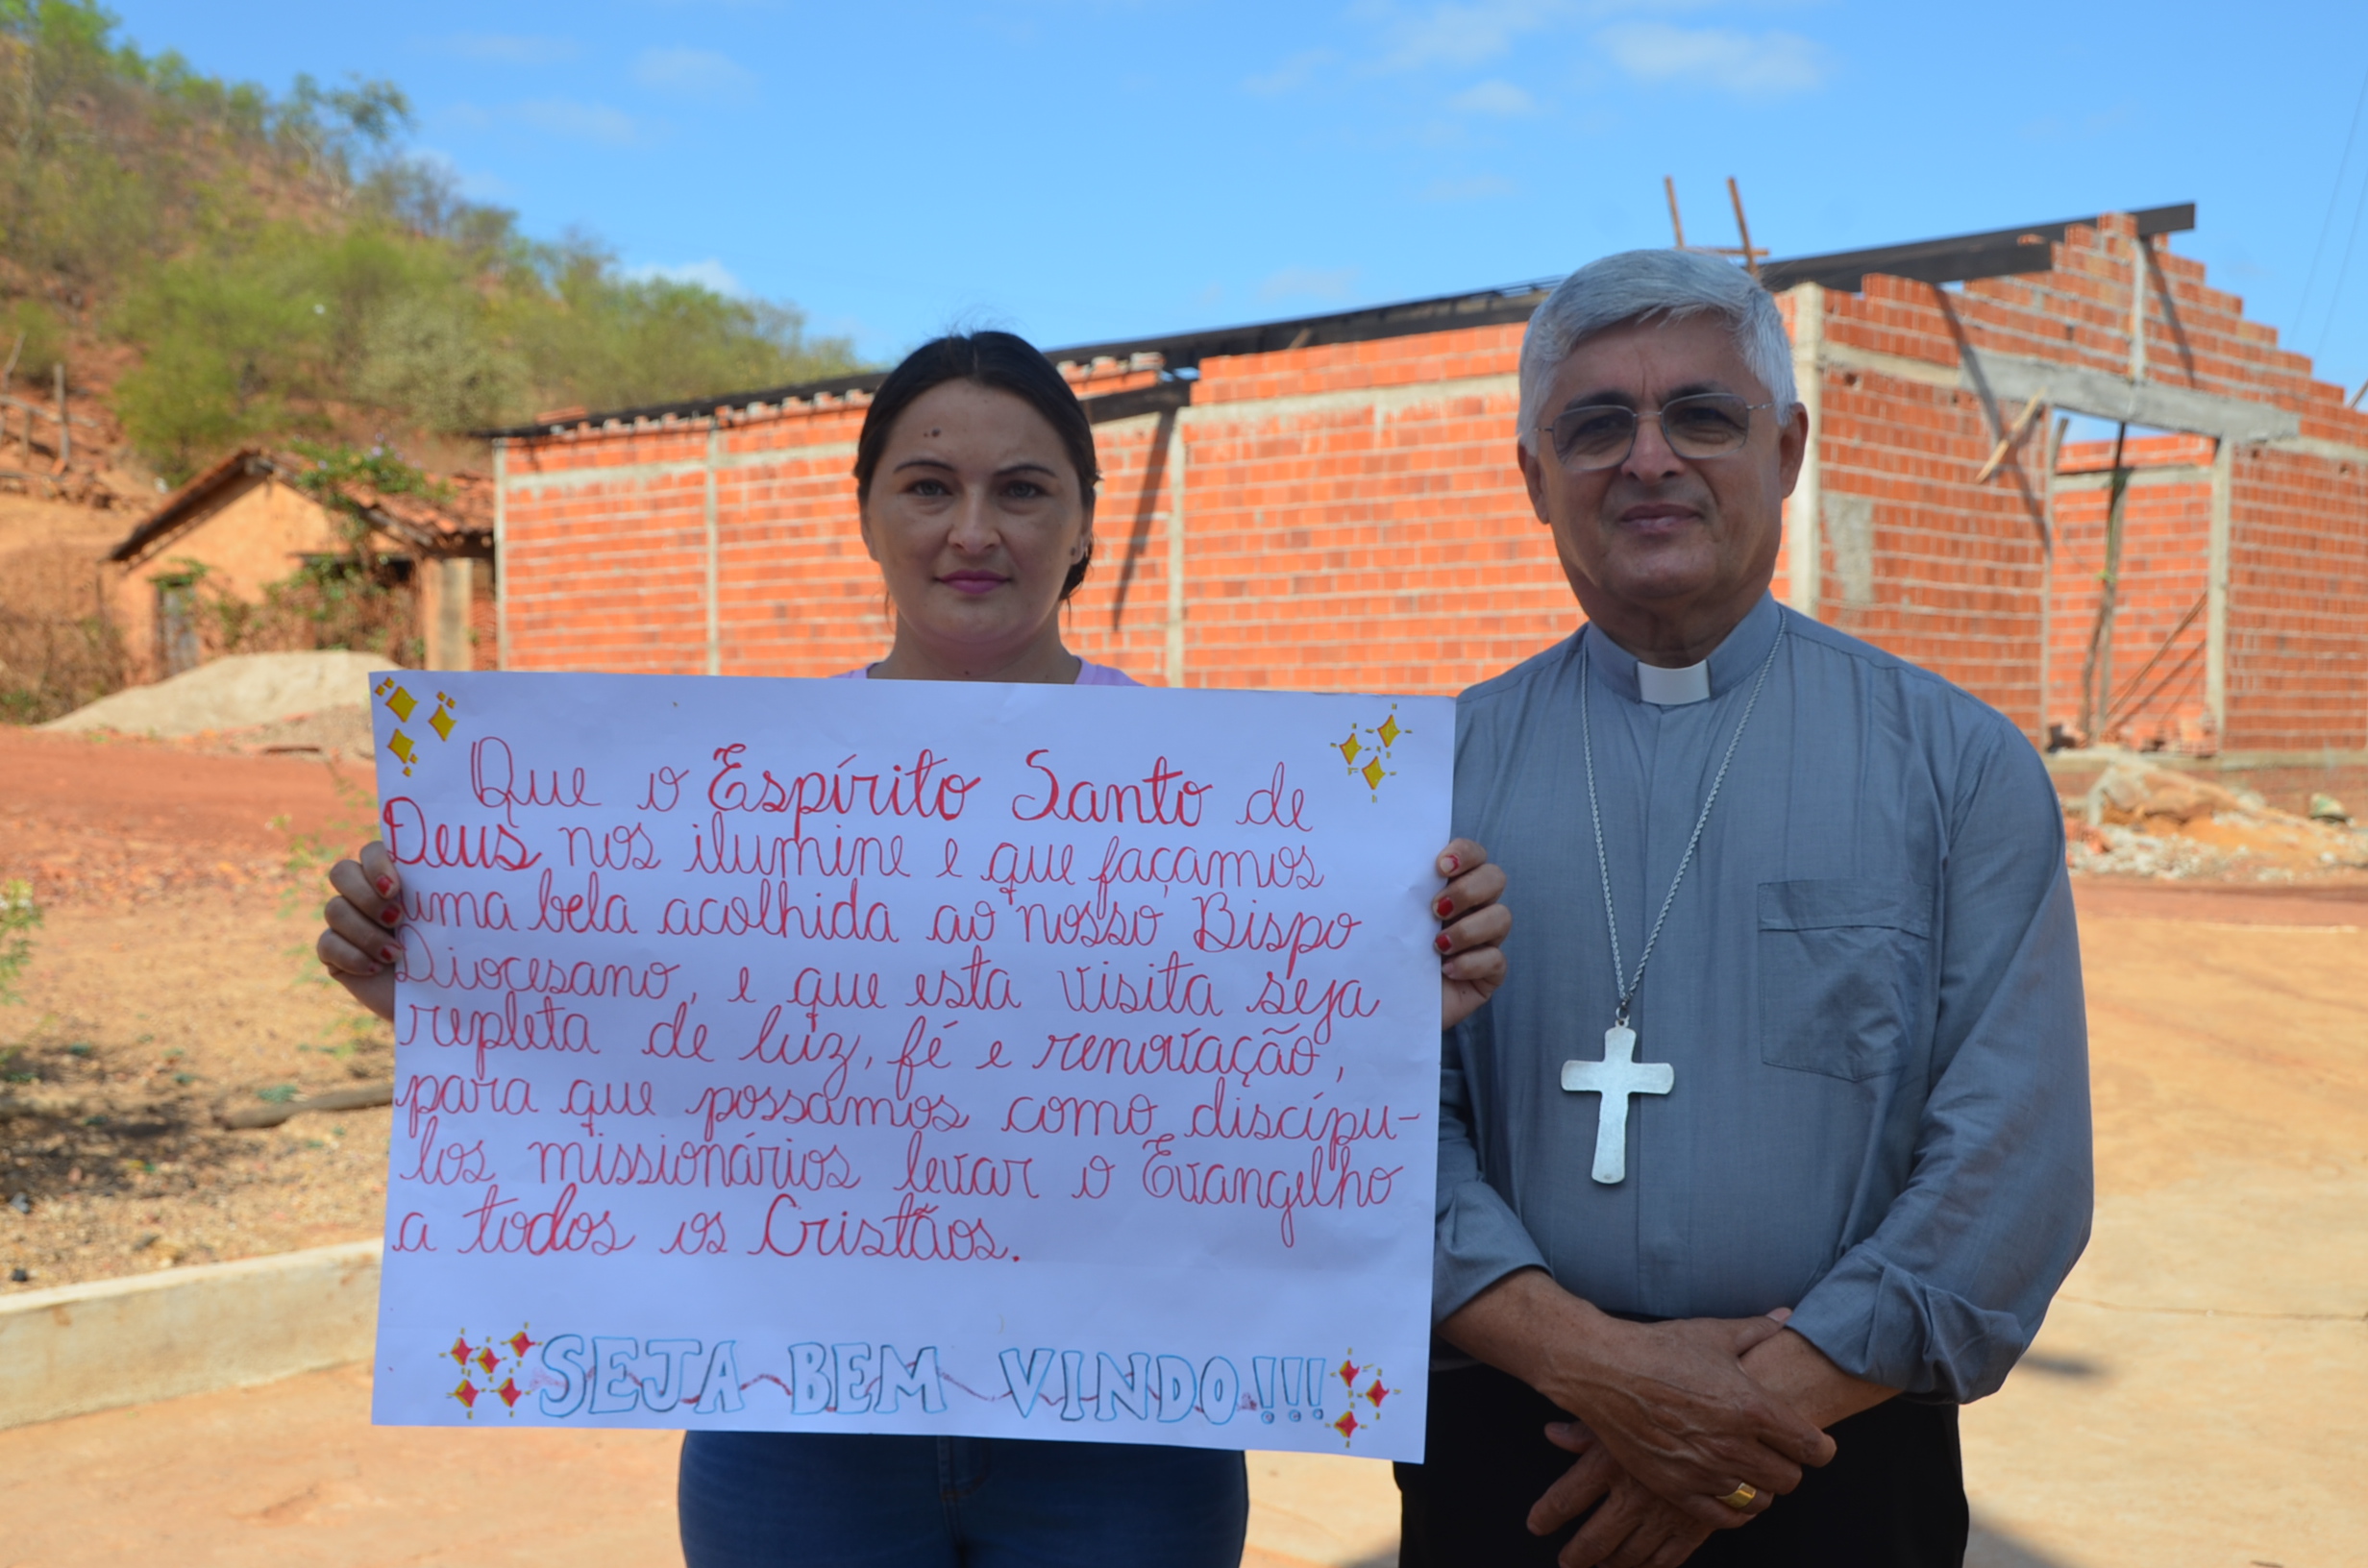 Que o Espírito Santo de
Deus nos ilumine e que façamos
uma bela acolhida ao nosso Bispo
Diocesano, e que esta visita seja
repleta de luz, fé e renovação,
para que possamos como discípu-
los missionários levar o Evangelho
a todos os Cristãos.
SEJA BEM VINDO!!!